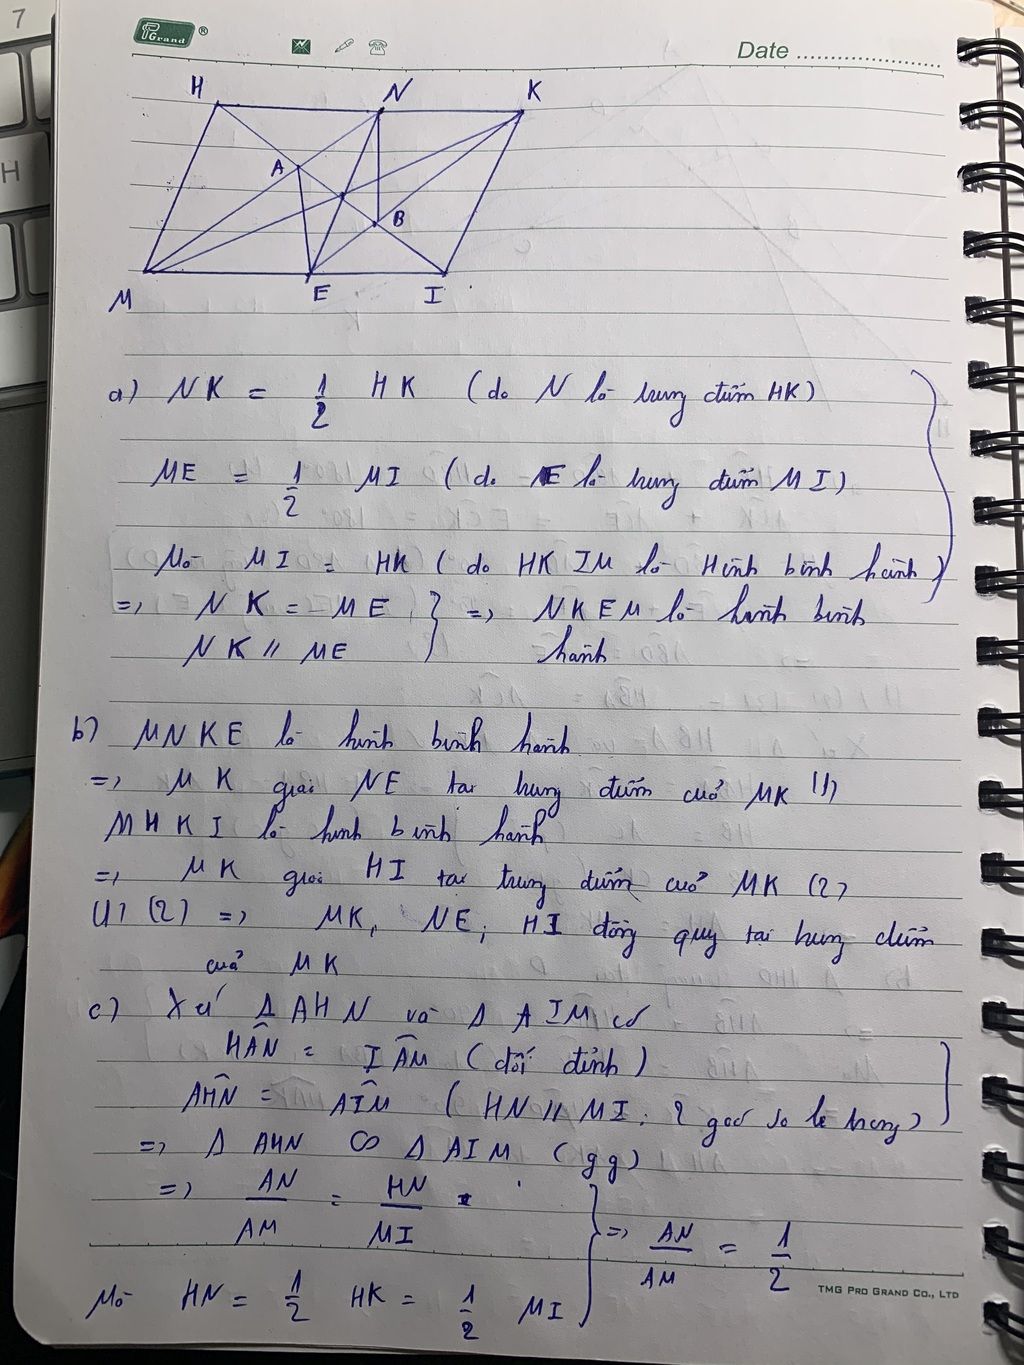 7
H
PGrand ®
Date ........................
H N K
A
B
M E I
a) NK = 1/2 HK (do N là trung điểm HK)
ME = 1/2 MI (do E là trung điểm MI)
Mà MI = HK (do HK IM là Hình bình hành)
=> NK = ME } => NKEM là hình bình
NK // ME hành
b) MNKE là hình bình hành
=> MK giao NE tại trung điểm của MK (1)
MHKI là hình bình hành
=> MK giao HI tại trung điểm của MK (2)
(1) (2) => MK, NE; HI đồng quy tại trung điểm
của MK
c) Xét Δ AHN và Δ AIM có
HÂN = IÂM (đối đỉnh)
AĤN = AÎM (HN // MI; 2 góc so le trong)
=> Δ AHN ∽ Δ AIM (gg)
=> AN/AM = HN/MI } => AN/AM = 1/2
Mà HN = 1/2 HK = 1/2 MI
TMG PRO GRAND CO., LTD